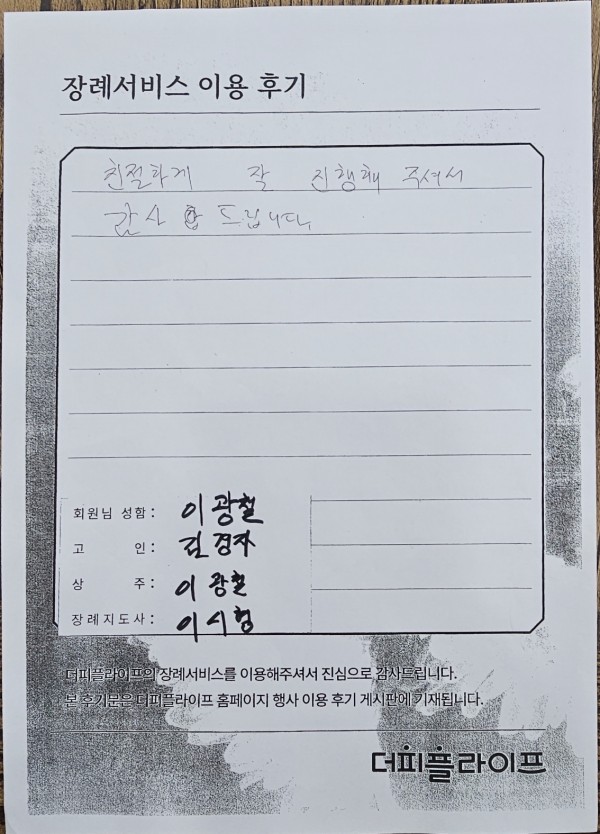 장례서비스 이용 후기
친절하게 잘 진행해 주셔서
감사 합 드립니다.
회원님 성함 : 이광철
고 인 : 김경자
상 주 : 이광철
장례지도사 : 이시형
더피플라이프의 장례서비스를 이용해주셔서 진심으로 감사드립니다.
본 후기문은 더피플라이프 홈페이지 행사 이용 후기 게시판에 기재됩니다.
더피플라이프